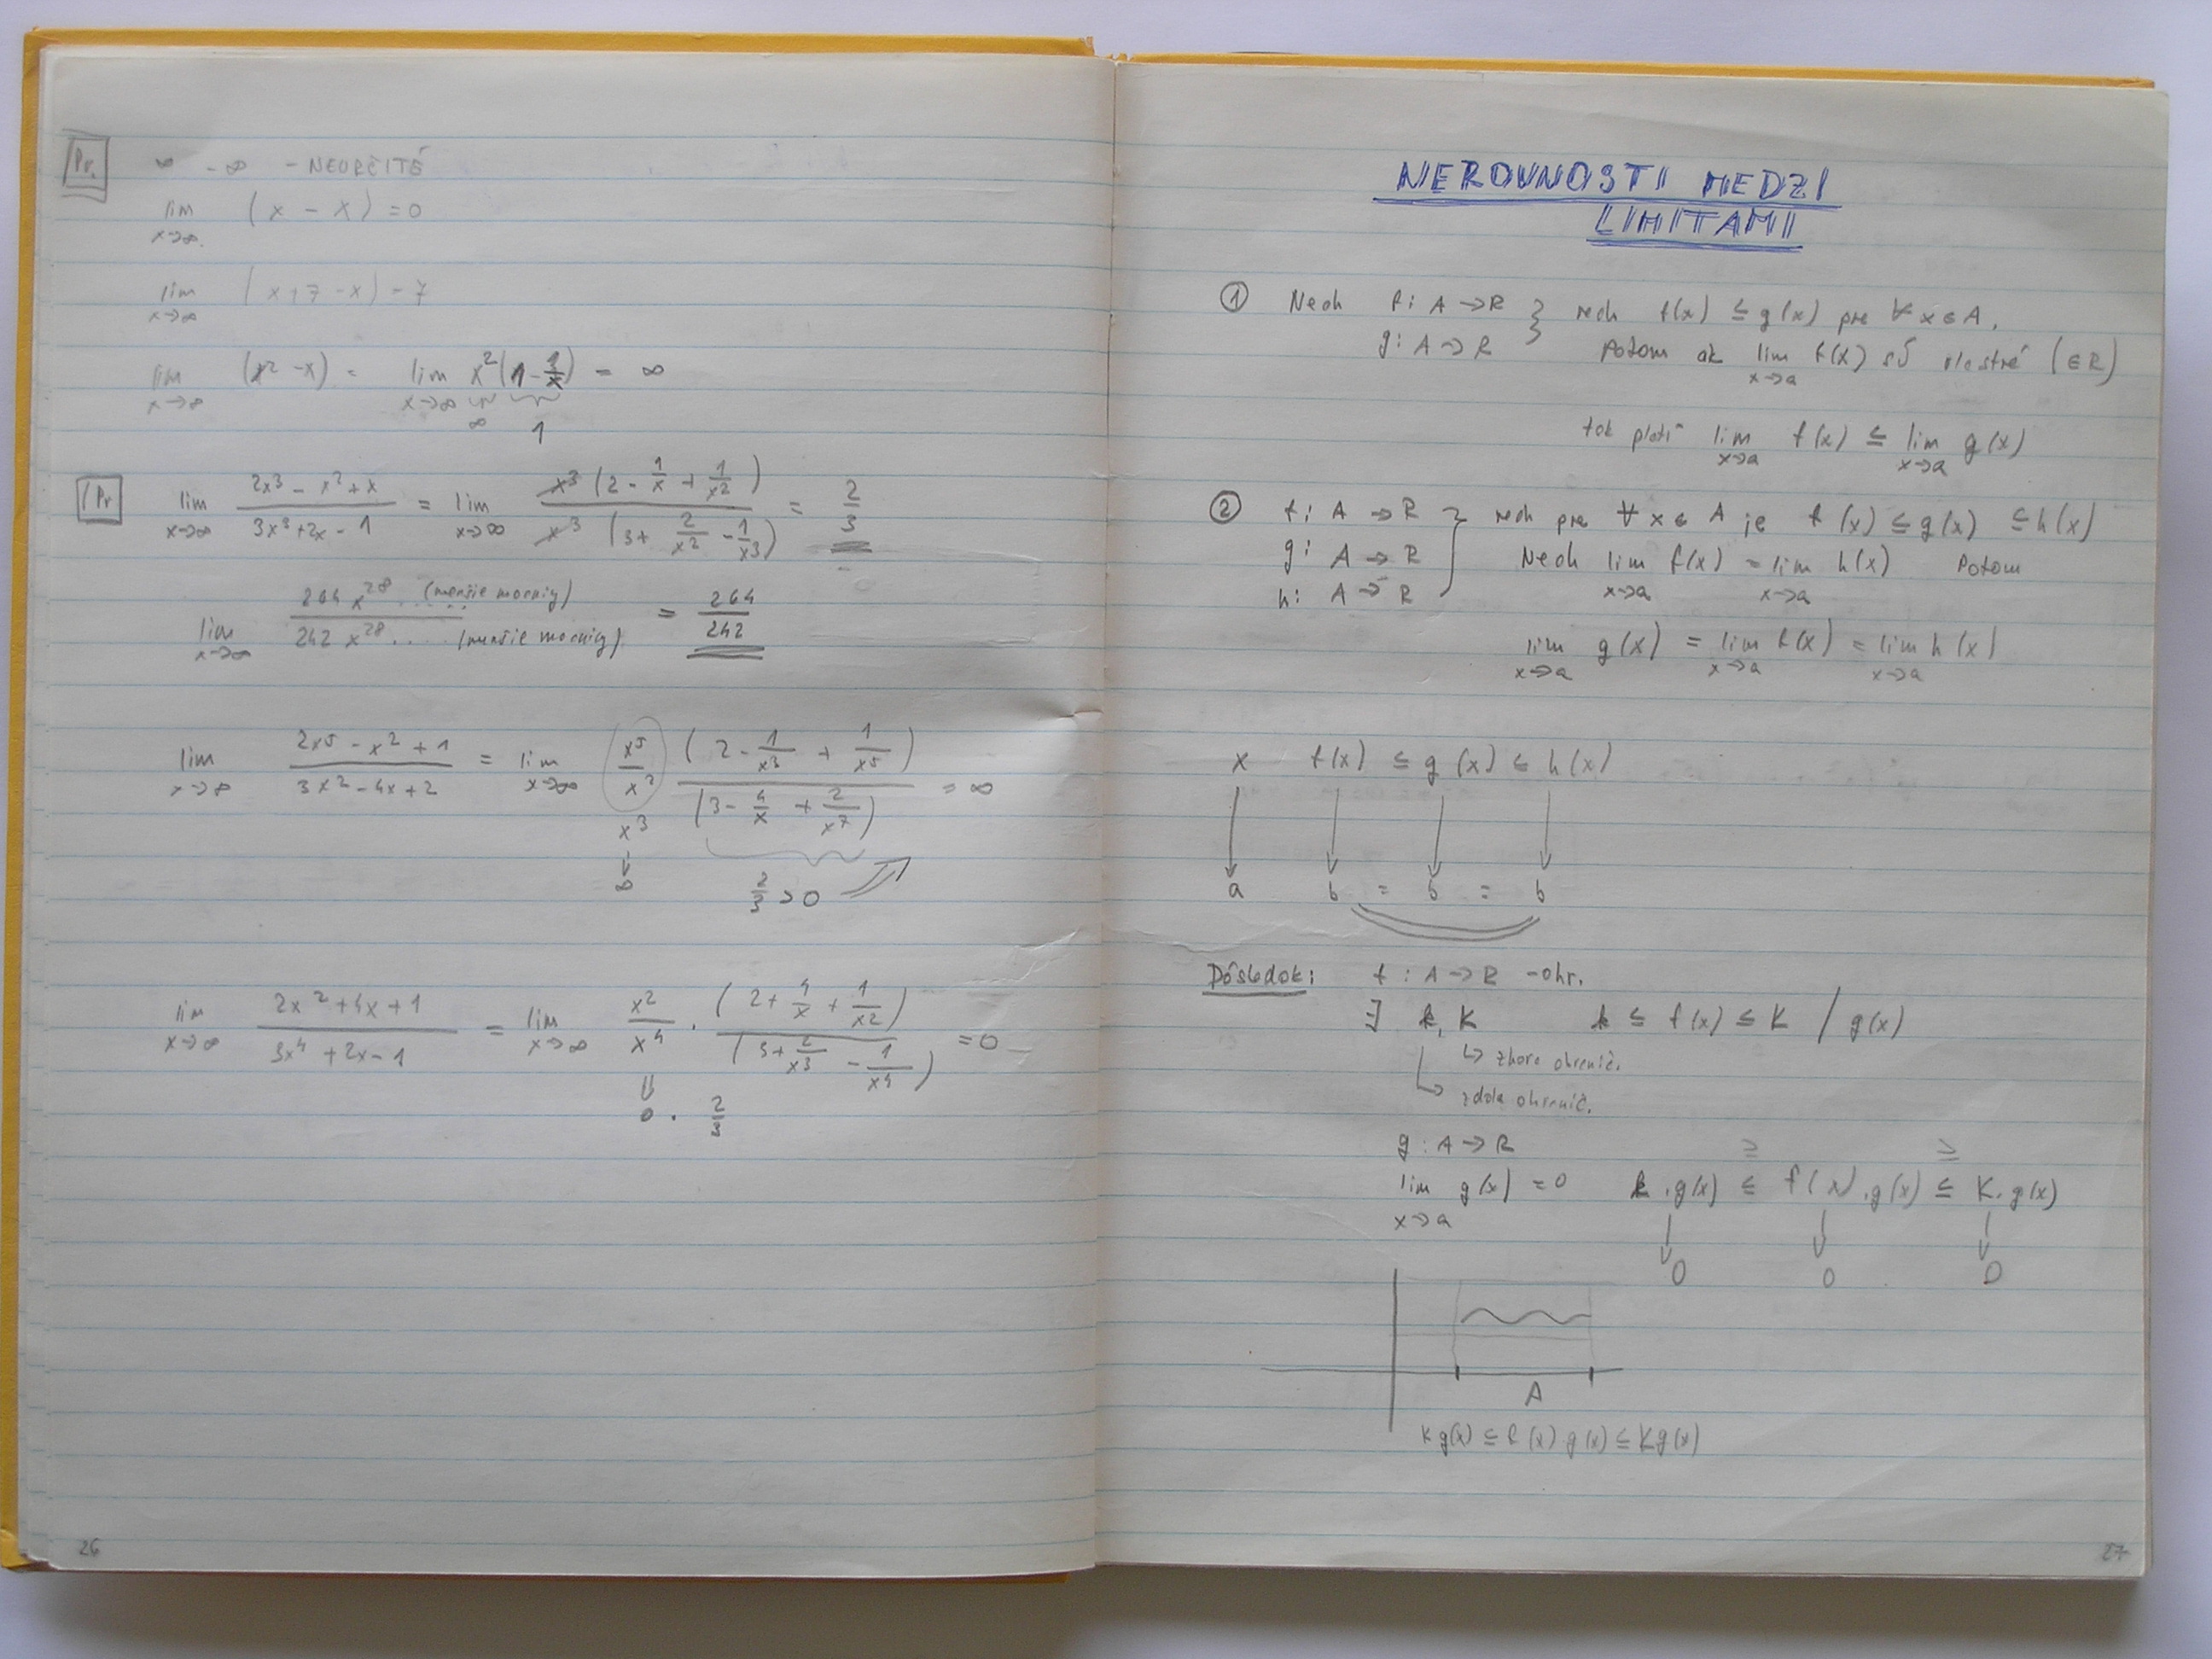 Pr.
∞ - ∞ - NEURČITÉ
lim x→∞ (x - x) = 0
lim x→∞ (x+7-x) = 7
lim x→∞ (x² - x) = lim x→∞ x²(1 - 1/x) = ∞
∞ 1
Pr
lim x→∞ (2x³ - x² + x)/(3x³ + 2x - 1) = lim x→∞ x³(2 - 1/x + 1/x²) / x³(3 + 2/x² - 1/x³) = 2/3
lim x→∞ 264x²⁸ .... (menšie mocniny) / 242x²⁸ .... (menšie mocniny) = 264/242
lim x→∞ (2x⁵ - x² + 1)/(3x² - 4x + 2) = lim x→∞ x⁵/x² (2 - 1/x³ + 1/x⁵)/(3 - 4/x + 2/x²) = ∞
x³
↓
∞ 2/3 > 0
lim x→∞ (2x² + 4x + 1)/(3x⁴ + 2x - 1) = lim x→∞ x²/x⁴ · (2 + 4/x + 1/x²)/(3 + 2/x³ - 1/x⁴) = 0
⇓
0 · 2/3
26
NEROVNOSTI MEDZI
LIMITAMI
① Nech f: A → R } nech f(x) ≤ g(x) pre ∀ x ∈ A.
g: A → R Potom ak lim x→a f(x) sú vlastné (∈ R)
tak platí lim x→a f(x) ≤ lim x→a g(x)
② f: A → R } nech pre ∀ x ∈ A je f(x) ≤ g(x) ≤ h(x)
g: A → R Nech lim x→a f(x) = lim x→a h(x) Potom
h: A → R
lim x→a g(x) = lim x→a f(x) = lim x→a h(x)
x f(x) ≤ g(x) ≤ h(x)
↓ ↓ ↓ ↓
a b = b = b
Dôsledok: f: A → R - ohr.
∃ k, K k ≤ f(x) ≤ K / g(x)
↳ zhora ohranič.
↳ zdola ohranič.
g: A → R
≥ ≥
lim x→a g(x) = 0 k.g(x) ≤ f(x).g(x) ≤ K.g(x)
↓ ↓ ↓
0 0 0
A
k g(x) ≤ f(x) g(x) ≤ K g(x)
27